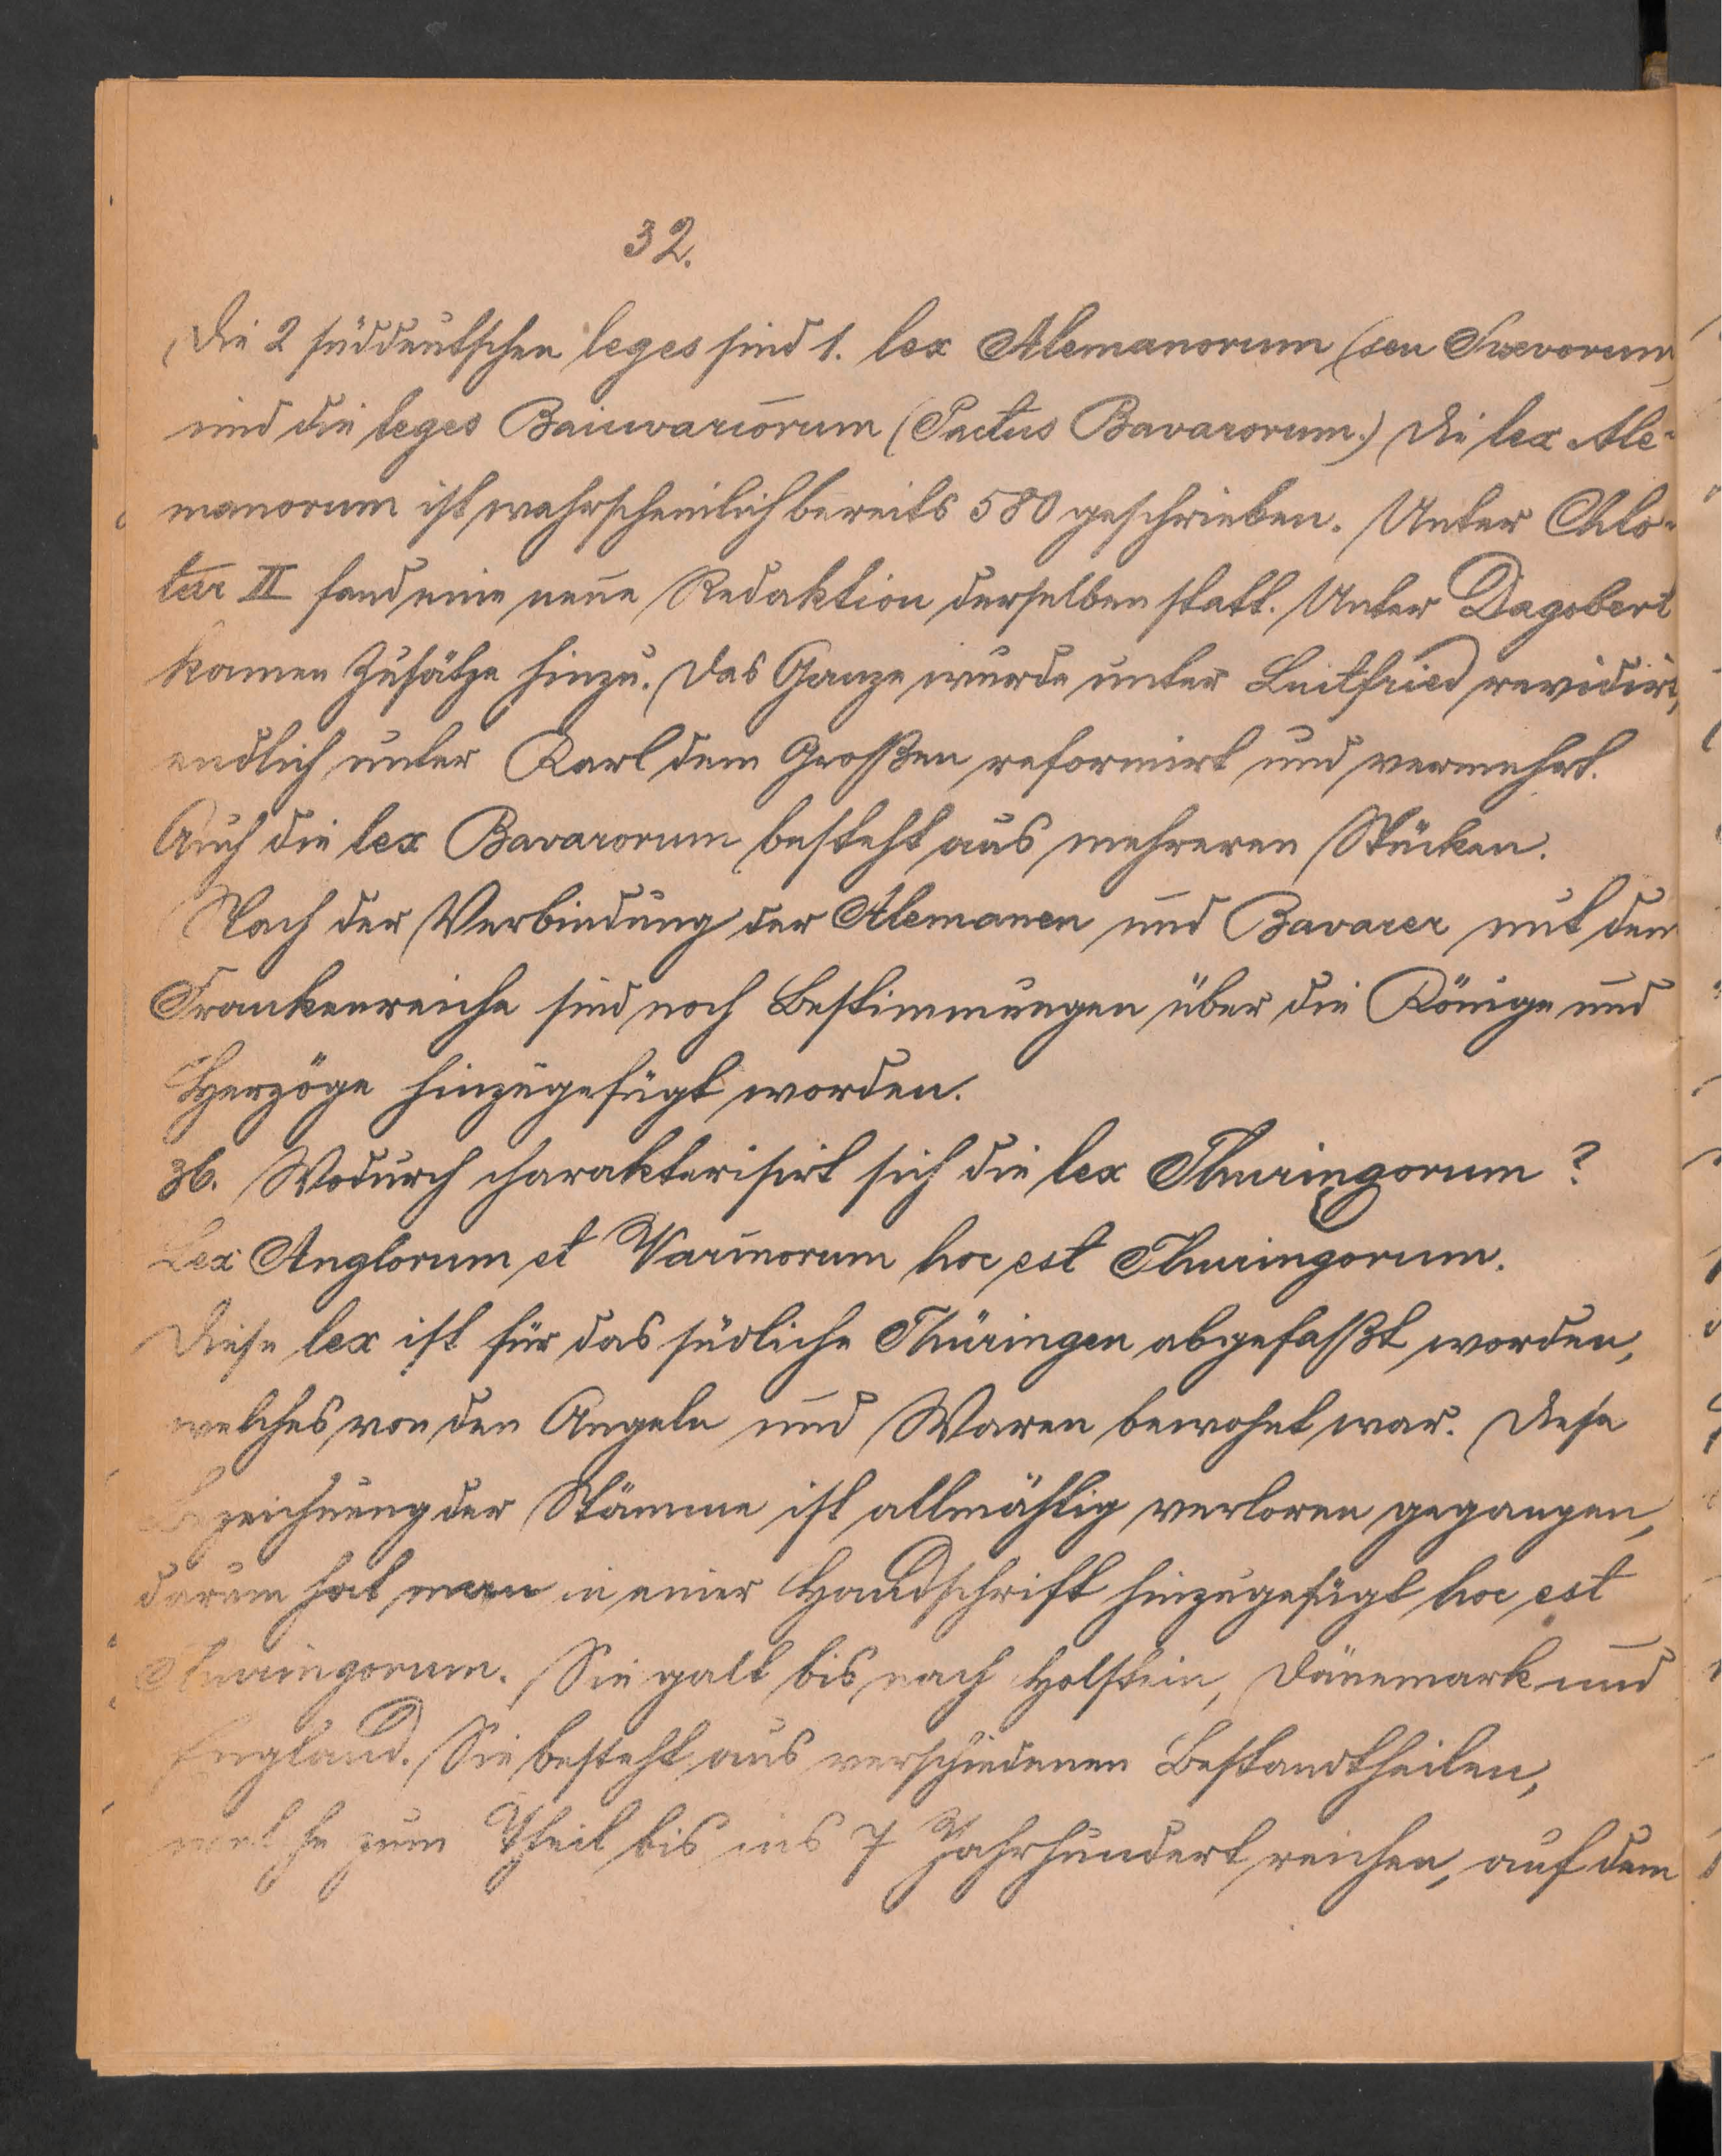 32.
Die 2 süddeutschen leges sind 1. lex Alemanorum (seu Suevorum)
und die leges Baiuvariorum (Pactus Bavarorum.) Die lex Ale-
manorum ist wahrscheinlich bereits 580 geschrieben. Unter Chlo-
tar II fand eine neue Redaktion derselben statt. Unter Dagobert
kamen Zusätze hinzu. Das Ganze wurde unter Luitfried revidirt,
endlich unter Karl dem Großen reformirt und vermehrt.
Auch die lex Bavarorum besteht aus mehreren Stücken.
Nach der Verbindung der Alemanen und Bavarer mit dem
Frankenreiche sind noch Bestimmungen über die Könige und
Herzöge hinzugefügt worden.
36. Wodurch charakterisirt sich die lex Thuringorum?
Lex Anglorum et Varinorum hoc est Thuringorum.
Diese lex ist für das südliche Thüringen abgefaßt worden,
welches von den Angeln und Waren bewohnt war. Diese
Bezeichnung der Stämme ist allmählig verloren gegangen,
darum hat man in einer Handschrift hinzugefügt hoc est
Thuringorum. Sie galt bis nach Holstein, Dänemark und
England. Sie besteht aus verschiedenen Bestandtheilen,
welche zum Theil bis ins 7 Jahrhundert reichen, auf dem